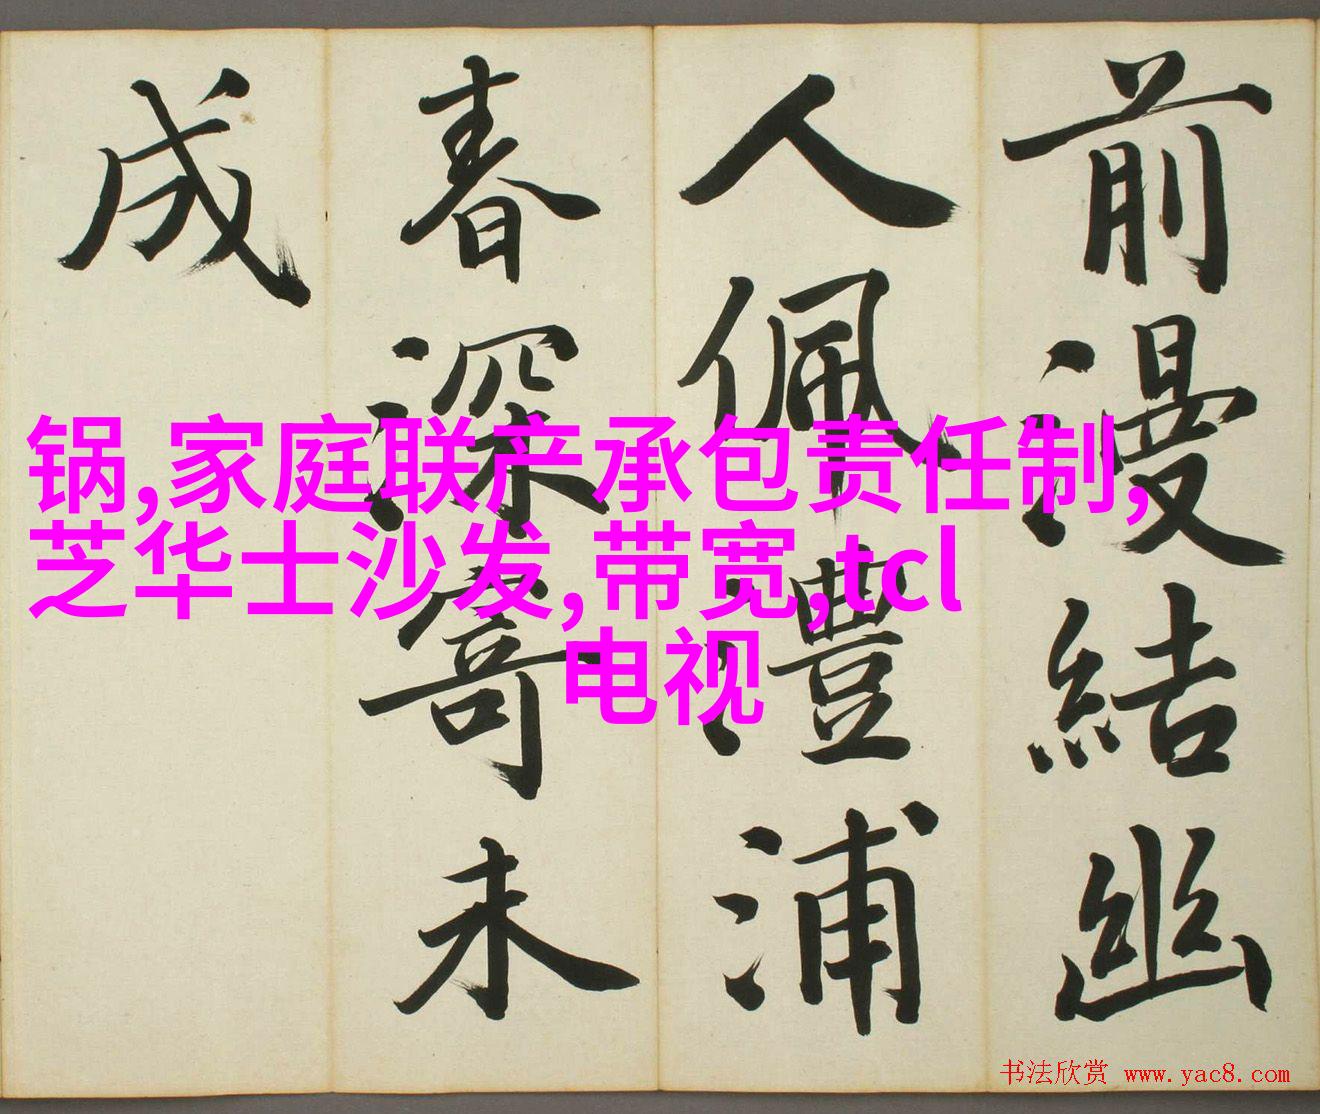 前漫結幽
人佩澧浦
春深寄未
成
锅,家庭联产承包责任制,
芝华士沙发,带宽,tcl
电视
书法欣赏 www.yac8.com